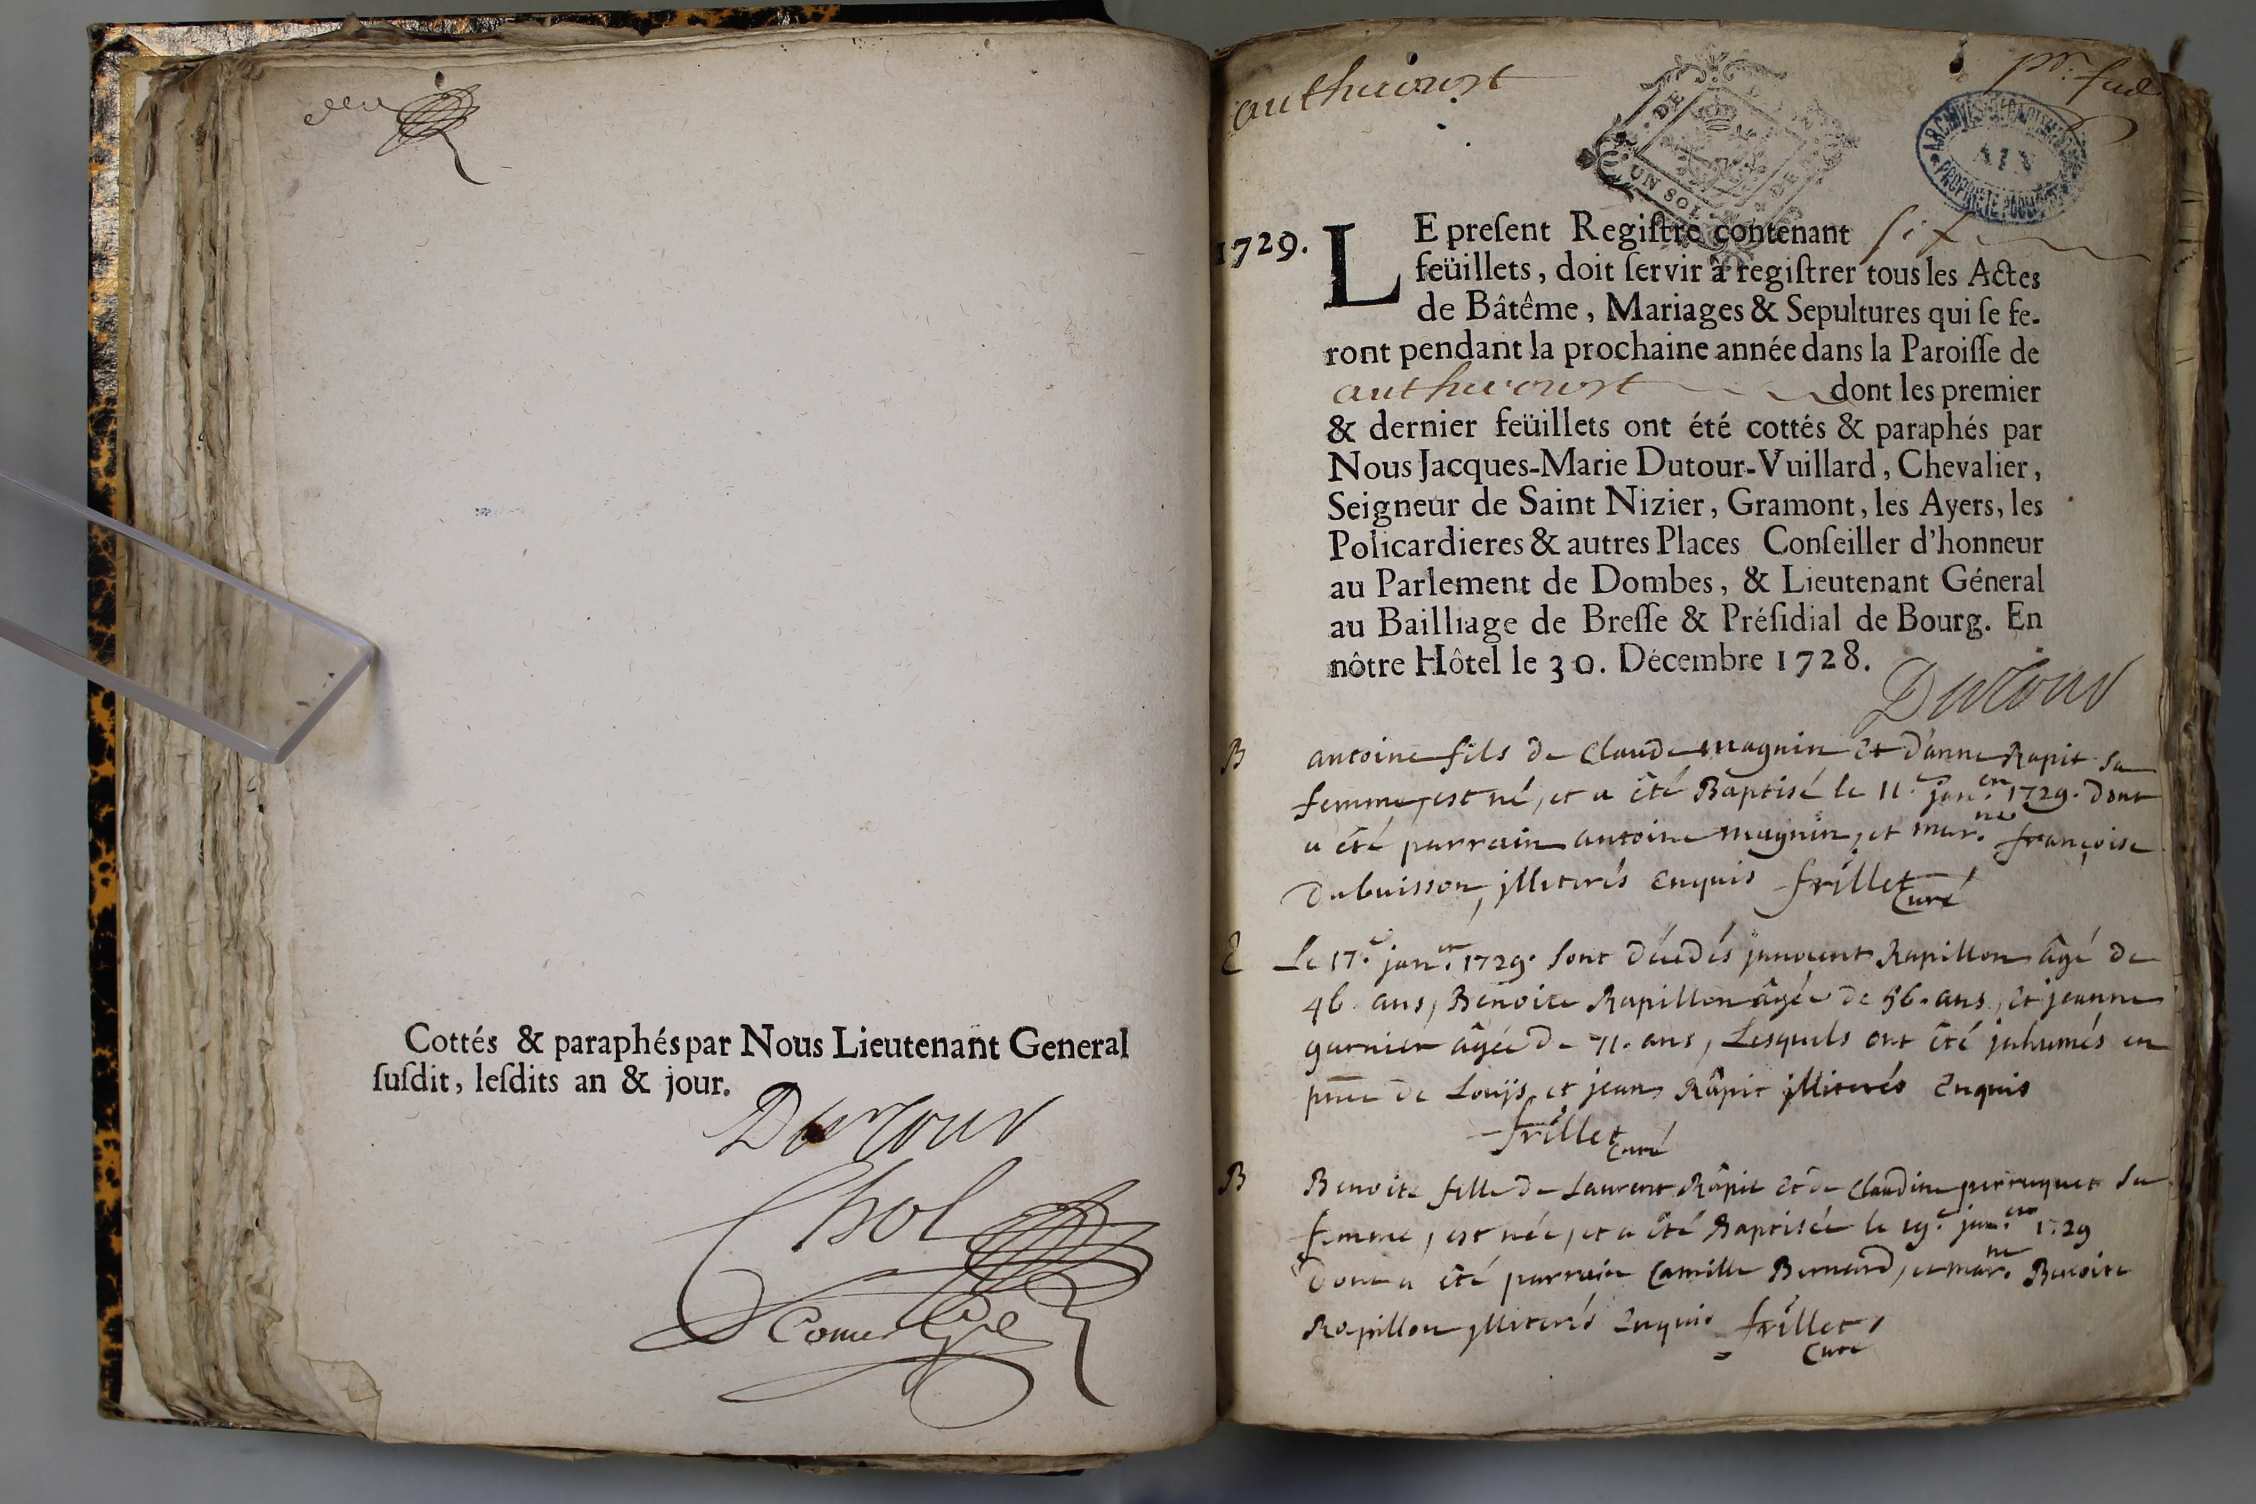 Cottés & paraphés par Nous Lieutenant General
suſdit, leſdits an & jour.
Dutour
Chol
authecourt
DE
UN SOL
AIN
1729. LE preſent Regiſtre contenant six
feüillets, doit ſervir à regiſtrer tous les Actes
de Bâtême, Mariages & Sepultures qui ſe fe-
ront pendant la prochaine année dans la Paroiſſe de
authecourt dont les premier
& dernier feüillets ont été cottés & paraphés par
Nous Jacques-Marie Dutour-Vuillard, Chevalier,
Seigneur de Saint Nizier, Gramont, les Ayers, les
Policardieres & autres Places Conſeiller d'honneur
au Parlement de Dombes, & Lieutenant Géneral
au Bailliage de Breſſe & Préſidial de Bourg. En
nôtre Hôtel le 30. Décembre 1728.
Dutour
B antoine fils de Claude magnin et d'anne Rapit sa
femme, est né, et a êté Baptisé le 11.e jan.er 1729. dont
a êté parrain antoine magnin, et mar.ne françoise
Dubuisson, jlliterés enquis frillet
Curé
E Le 17.e jan.er 1729. sont décedés jnnocent Rapillon âgé de
46 ans, Benoite Rapillon âgée de 56. ans, et jeanne
garnier âgée de 71. ans, Lesquels ont êté jnhumés en
pnce de Louis, et jean Râpit jlliterés Enquis
frillet
Curé
B Benoite fille de Laurent Râpit et de Claudine perruquet sa
femme, est née, et a êté Baptisée le 19.e jan.er 1729
Dont a êté parrain Camille Bernard, et mar.ne Benoite
Rapillon jlliterés Enquis frillet
Curé